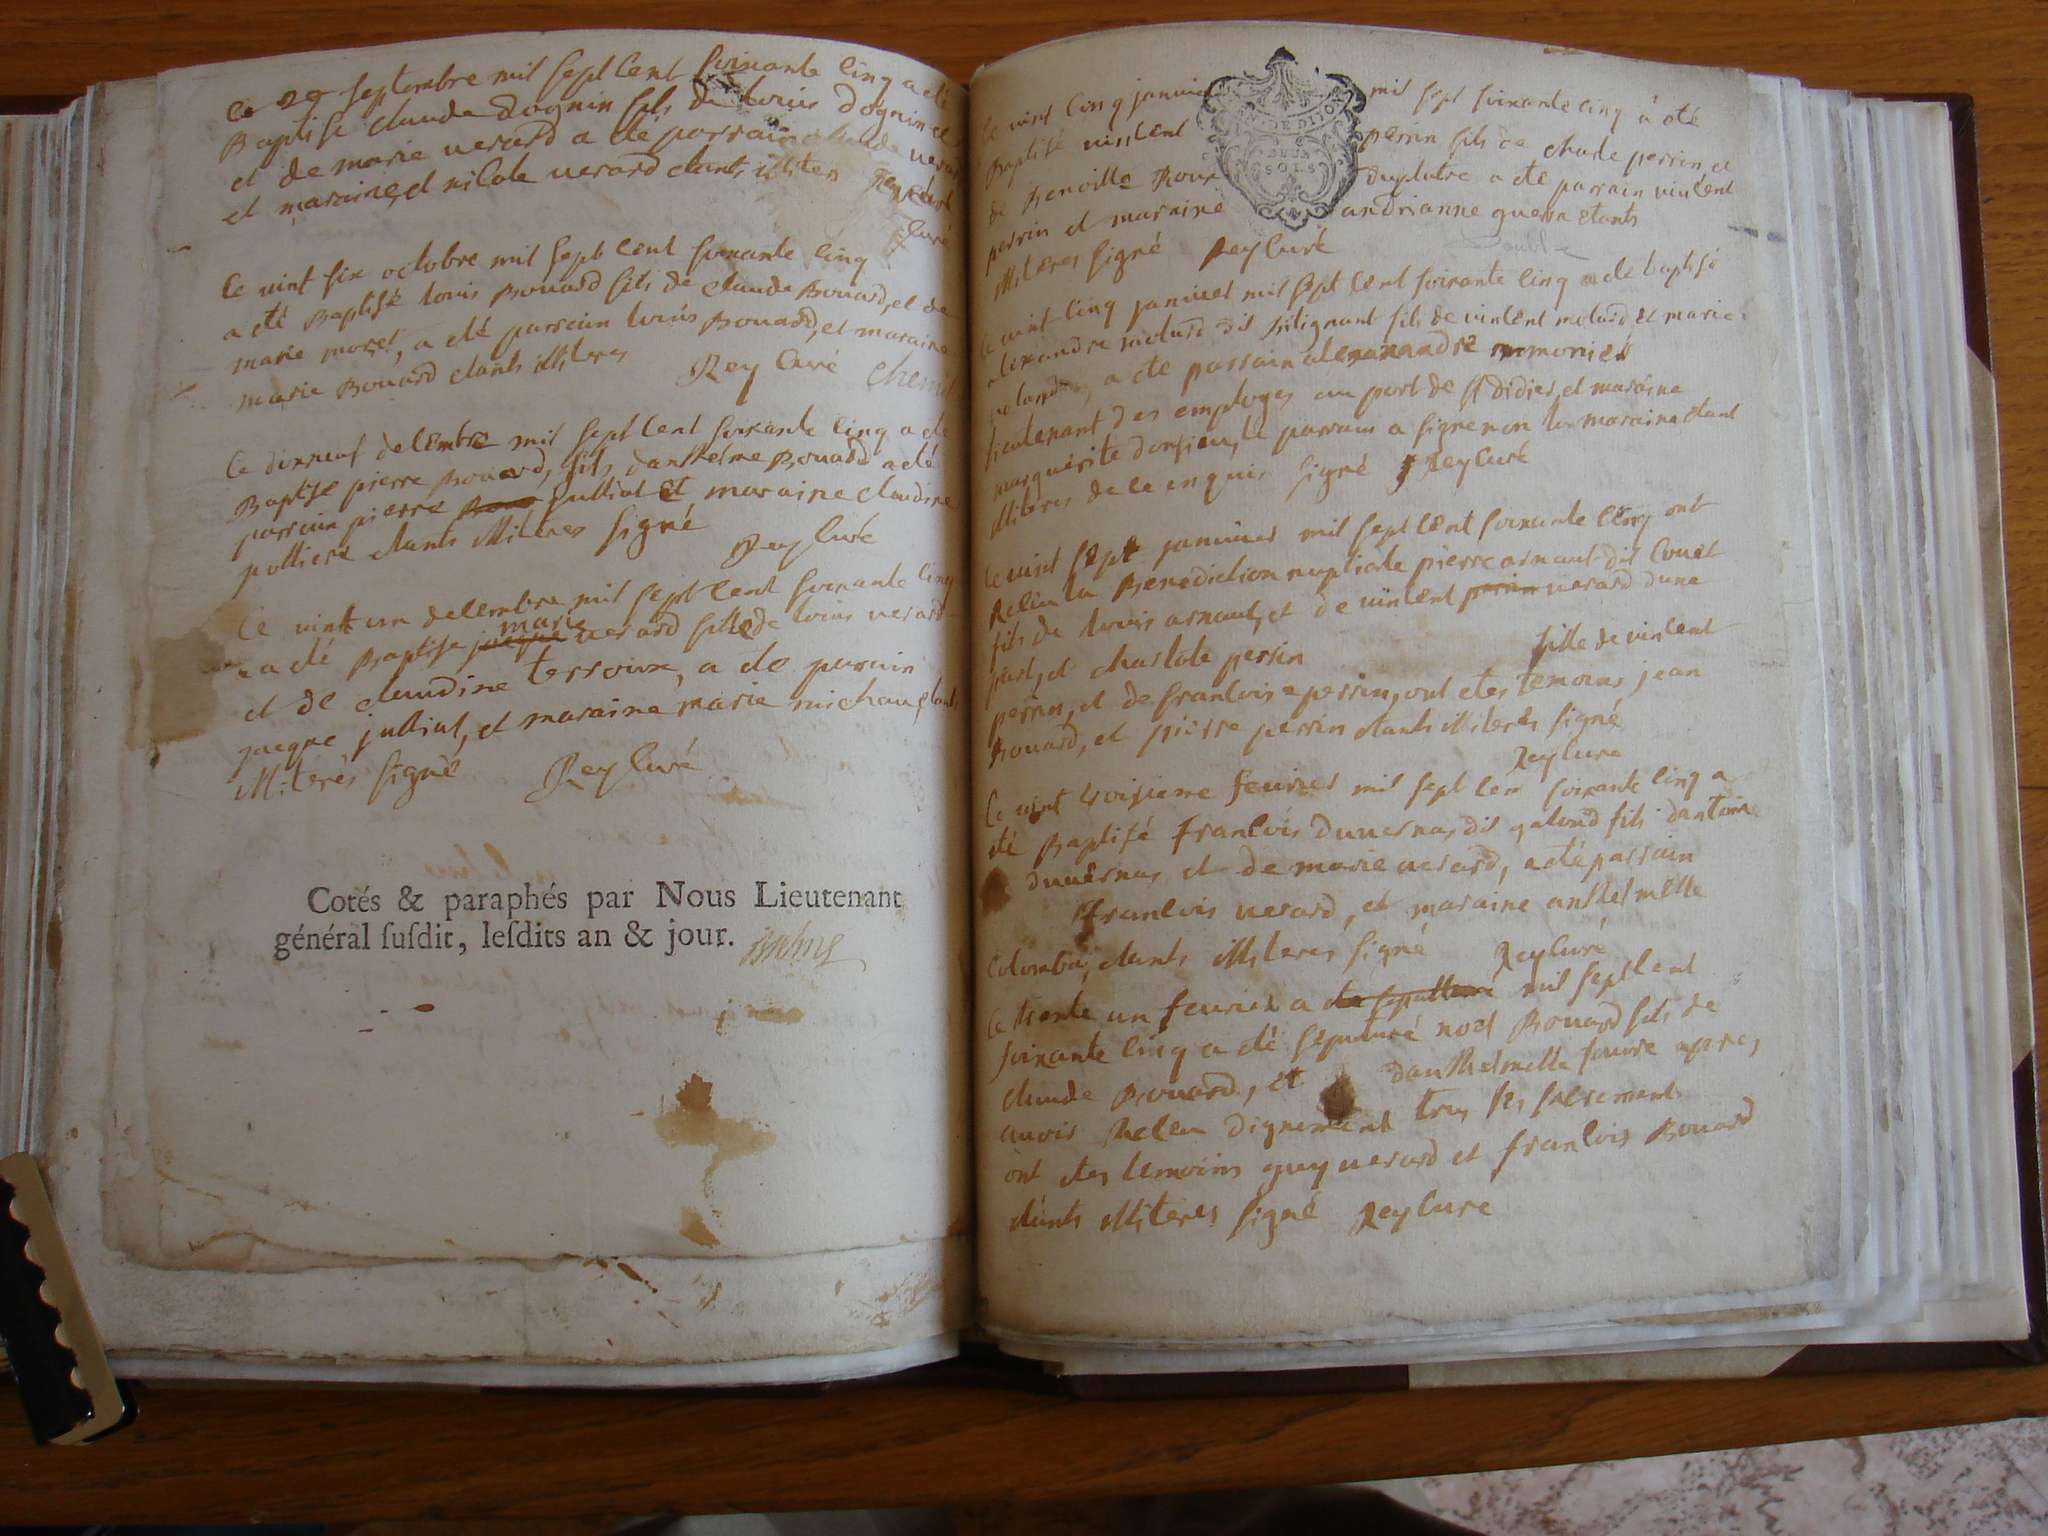 Ce 29 septembre mil sept cent soixante cinq a eté
Baptisé claude Dognin fils de louis Dognin et
et de marie verard a eté parrain claude verard
et maraine et nicole verard etants illiteres Rey curé
curé
Ce vint six octobre mil sept cent soixante cinq
a eté Baptisé louis Bouard fils de claude Bouard, et de
marie morel, a eté parrain louis Bouard, et maraine
marie Bouard etants illiteres Rey curé
Ce dixneuf decembre mil sept cent soixante cinq a eté
Baptisé pierre Bouard, fils danthelme Bouard a eté
parrain pierre jullial et maraine claudine
polliere etants illiteres signé
Rey curé
Ce vint un decembre mil sept cent soixante cinq
a eté Baptisé jacque marie verard fille de louis verard
et de claudine terroux, a eté parrain
jacque jullial, et maraine marie michau etants
illiterés signé Rey curé
Cotés & paraphés par Nous Lieutenant
général ſuſdit, leſdits an & jour.
GEN. DE DIJON
DEUX
SOLS
Ce vint cinq janvier mil sept soixante cinq à eté
Baptisé vincent perrin fils de charle perrin et
de Benoitte Roux duplutre a eté parrain vincent
perrin et maraine andrianne guerra etants
illiteres signé Rey Curé
Ce vint cinq janvier mil sept cent soixante cinq a eté baptisé
alexandre molard dit fils de vincent molard et marie
a eté parrain alexandre monier
lieutenant des employes au port de st didier, et maraine
marguerite donsieu, le parrain a signe non la maraine etant
illiteres de ce enquis signé Rey curé
Ce vint sept janvier mil sept cent soixante cinq ont
Receu la Benediction nuptiale pierre arnaut dit Couet
fils de louis arnaut, et de vincent perrin verard dune
part, et charlote perrin fille de vincent
perrin, et de francoise perrin, ont etes temoins jean
Bouard, et pierre perrin etants illiterés signé
Rey cure
Ce vint troisieme fevrier mil sept cen soixante cinq a
eté Baptisé francois Duvernay dit galond fils dantoine
duvernay et de marie verard, a eté parrain
francois verard, et maraine anthelmette
Colomba, etants illiteres signé Rey Curé
Ce trente un fevrier a eté sepulturé mil sept cent
soixante cinq a eté sepulturé noel Bouard fils de
claude Bouard, et danthelmette favre apres
avoir Receu dignement tous ses sacrements
ont etes temoins guy verard et francois Bouard
etants illiteres signé Rey cure